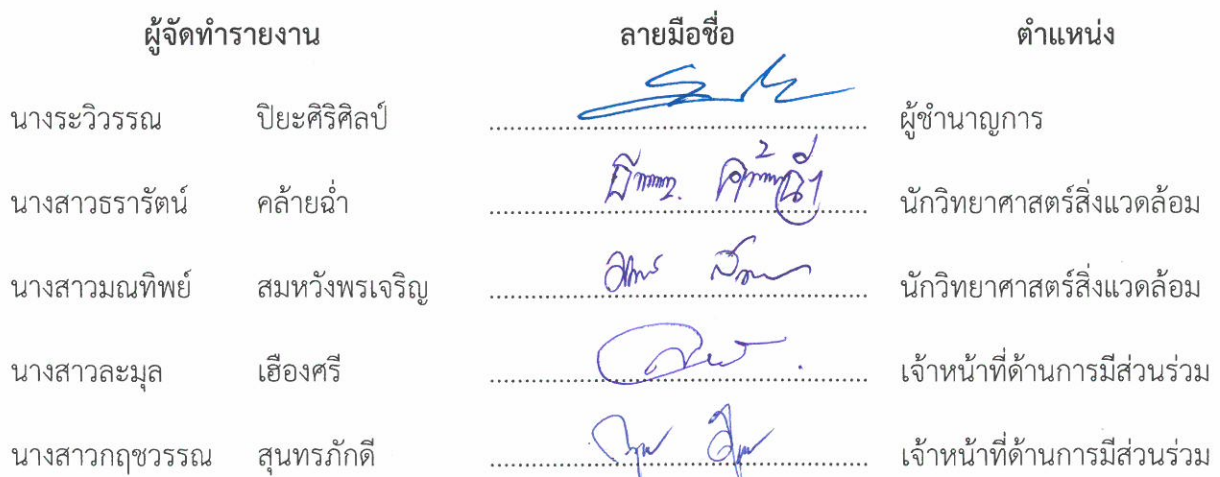 ผู้จัดทำรายงาน ลายมือชื่อ ตำแหน่ง
นางระวิวรรณ ปิยะศิริศิลป์ ผู้ชำนาญการ
นางสาวธรารัตน์ คล้ายฉ่ำ นักวิทยาศาสตร์สิ่งแวดล้อม
นางสาวมณทิพย์ สมหวังพรเจริญ นักวิทยาศาสตร์สิ่งแวดล้อม
นางสาวละมุล เฮืองศรี เจ้าหน้าที่ด้านการมีส่วนร่วม
นางสาวกฤชวรรณ สุนทรภักดี เจ้าหน้าที่ด้านการมีส่วนร่วม